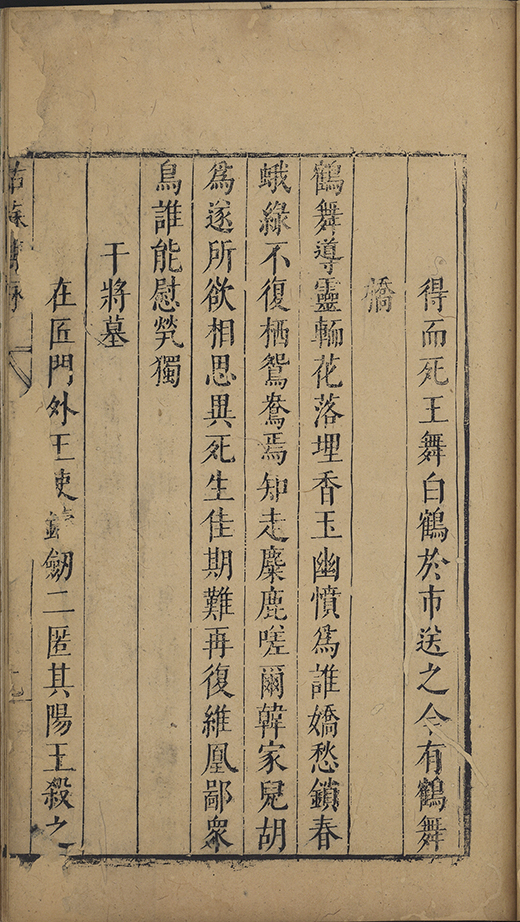 得而死王舞白鶴於市送之今有鶴舞
橋
鶴舞導靈輀花落埋香玉幽憤爲誰嬌愁鎖春
蛾綠不復栖鴛鴦焉知走麋鹿嗟爾韓家兒胡
爲遂所欲相思異死生佳期難再復維凰鄙衆
鳥誰能慰煢獨
干將墓
在匠門外王使鑄劒二匿其陽王殺之